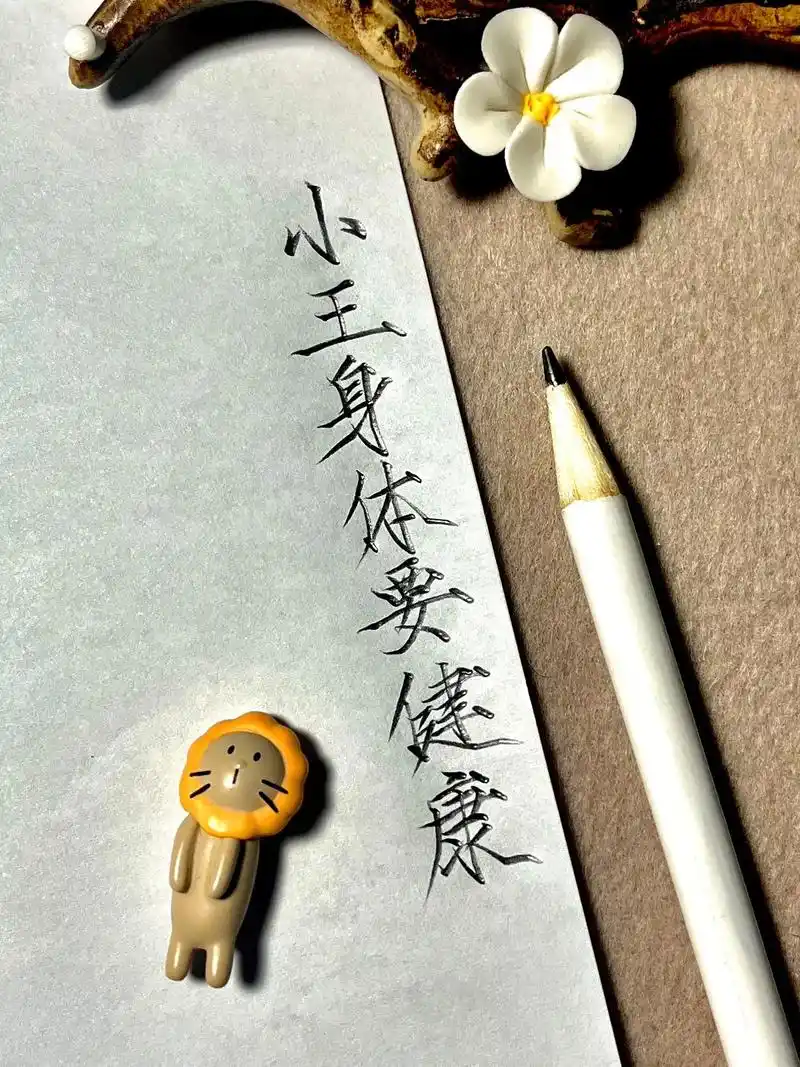 小王身体要健康